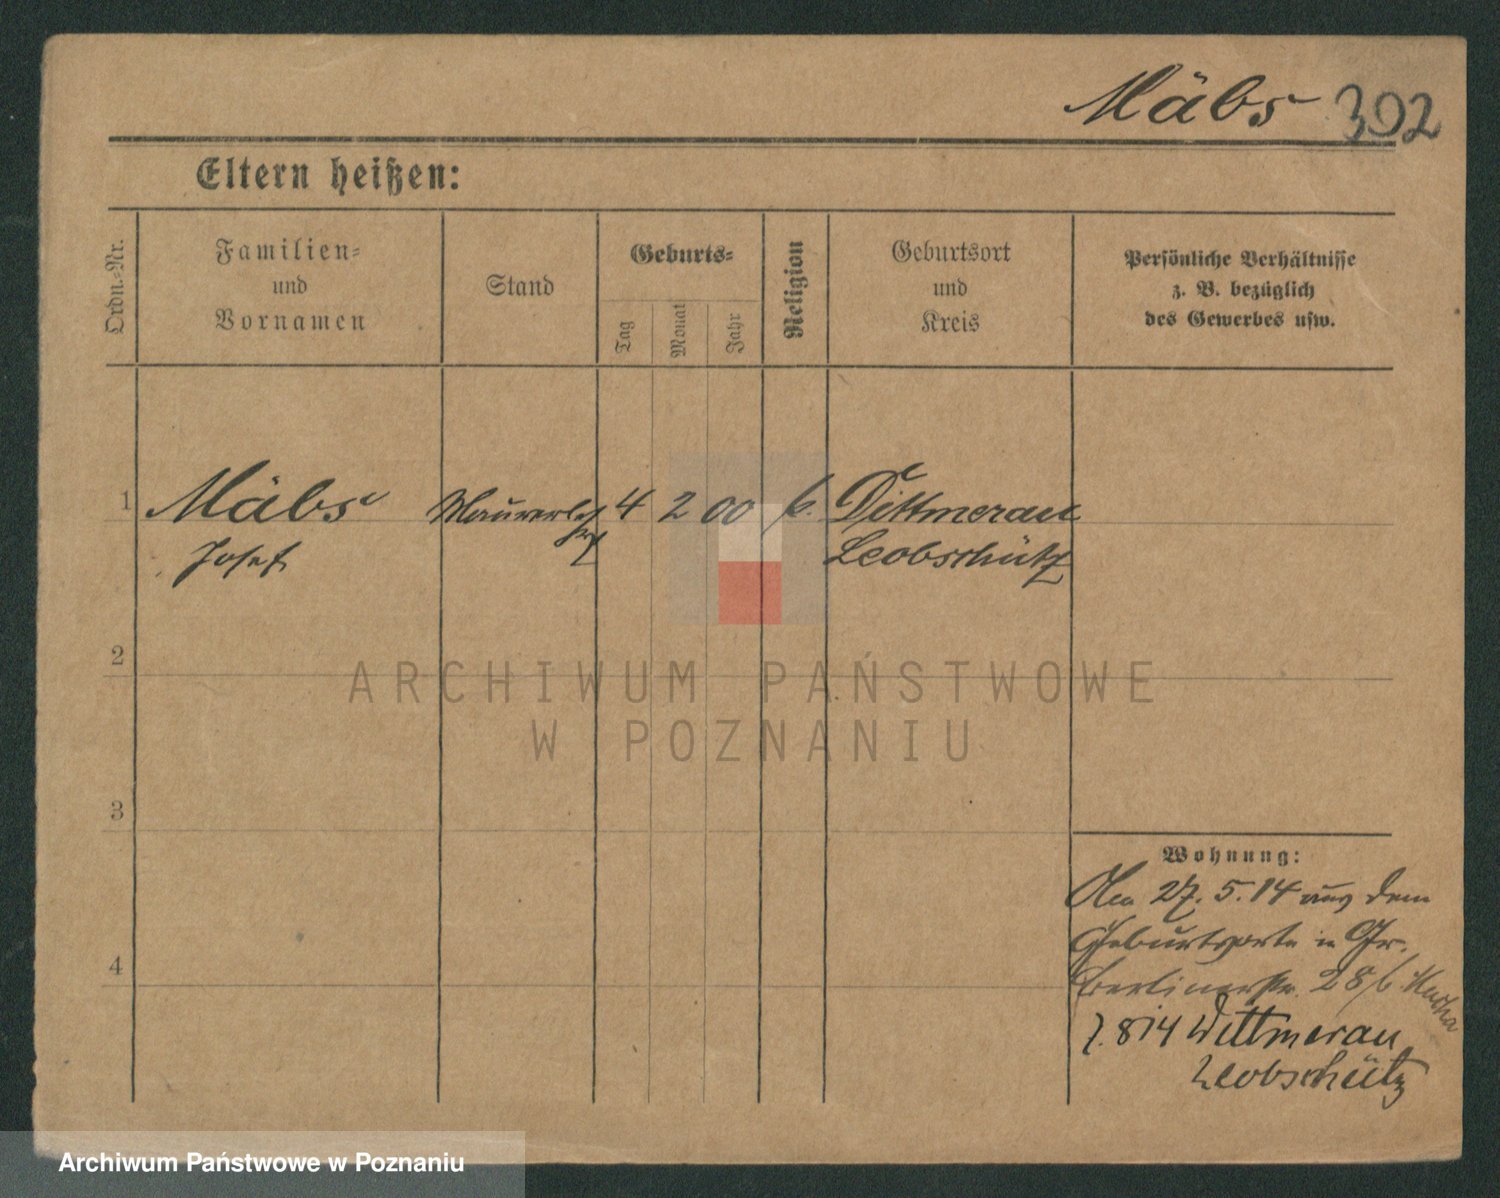 Mäbs 302
Eltern heißen:
Ordn.-Nr.
Familien-
und
Vornamen
Stand
Geburts-
Tag
Monat
Jahr
Religion
Geburtsort
und
Kreis
Persönliche Verhältnisse
z. B. bezüglich
des Gewerbes usw.
1 Mäbs 4 2 00 k. Dittmerau
Josef Leobschütz
2
3
4
ARCHIWUM PAŃSTWOWE
W POZNANIU
Wohnung:
Am 27. 5. 14 aus dem
Geburtsorte in Gr.
Berlinerstr. 28 b.
7. 8 14 Dittmerau
Leobschütz
Archiwum Państwowe w Poznaniu